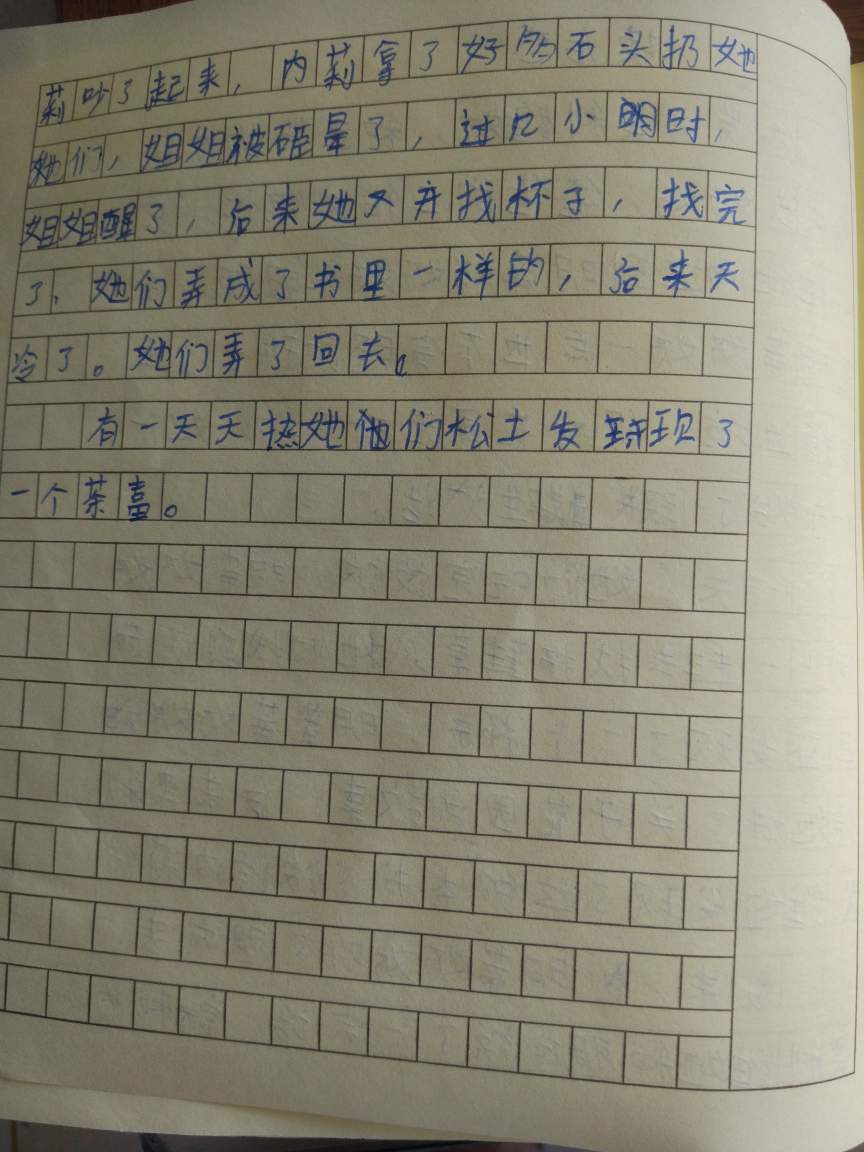 莉吵了起来，内莉拿了好多石头扔她
她们，姐姐被砸晕了，过几小明时，
姐姐醒了，后来她又开找杯子，找完
了，她们弄成了书里一样的，后来天
冷了。她们弄了回去。
有一天天热她他们松土发现了
一个茶壶。